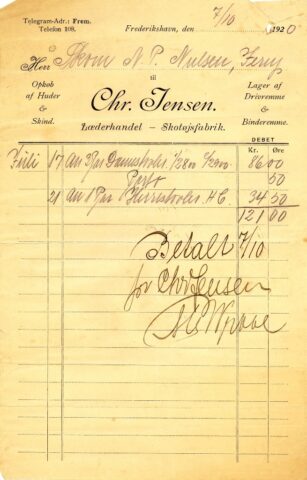 Telegram-Adr.: Frem.
Telefon 108.
Frederikshavn, den 7/10 1920
Herr Skom N. P. Nielsen, Jerup
til
Opkøb
af Huder
&
Skind.
Chr. Jensen.
Lager af
Drivremme
&
Binderemme.
Læderhandel – Skotøjsfabrik.
DEBET
Kr. Øre
Juli 17 An 3 Par Damestøvler 1/2800 2/2900 86 00
Porto 50
21 An 1 Par Herrestøvler H.C. 34 50
121 00
Betalt 7/10
for Chr Jensen